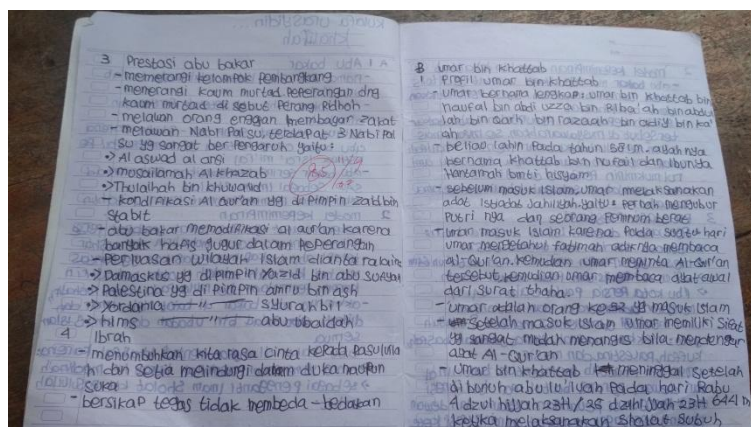 3 Prestasi abu bakar
- memerangi kelompok Pembangkang
- menerangi kaum murtad Peperangan dng
kaum murtad di sebut Perang Riddoh
- melawan orang enggan membayar zakat
- melawan Nabi Palsu, terdapat 3 Nabi Pal
su yg sangat ber Pengaruh yaitu:
-> Al aswad al ansi
-> musailamah Al Khazab
-> Thulaihah bin khuwailid
- kondifikasi Al Qur'an yg di pimpin zaid bin
stabit
- abu bakar memodifikasi al qur'an karena
banyak hafis gugur dalam Peperangan
- Perluasan wilayah Islam diantaralain:
-> Damaskus yg di Pimpin Yazid bin abu sufyan
-> Palestina yg di Pimpin amru bin ash
-> Yordania —"— syurahbil
-> hims —"— abu ubaidah
4 Ibrah
- menumbuhkan kita rasa cinta kepada Rasululla
h dan setia melindungi dalam duka maupun
suka
- bersikap tegas tidak membeda-bedakan
B umar bin khattab
1 Profil umar bin khattab
- umar bernama lengkap: umar bin khattab bin
naufal bin abdi uzza bin Riba'ah bin abdul
lah bin qarh bin razaah bin adiy bin ka'
ab
- beliau lahir Pada tahun 581 m. ayahnya
bernama khattab bin nufail dan ibunda
Hantamah binti hisyam
- sebelum masuk Islam, umar melaksanakan
adat Istiadat Jahiliyah. yaitu: Pernah mengubur
Putri nya dan seorang Peminum berat
- umar masuk Islam karena Pada suatu hari
umar mengetahui fatimah adiknya membaca
al-Qur'an. kemudian umar meminta Al-Qur'an
tersebut kemudian umar membaca ayat awal
dari surat thaha
- umar adalah orang ke yg masuk Islam
- setelah masuk Islam umar memiliki Sifat
yg sangat mudah menangis bila mendengar
ayat Al-Qur'an
- umar bin khattab meninggal setelah
di bunuh abu lu'luah Pada hari Rabu
4 dzul hijjah 23H / 25 dzulhijjah 23H 644 m
ketika melaksanakan sholat subuh